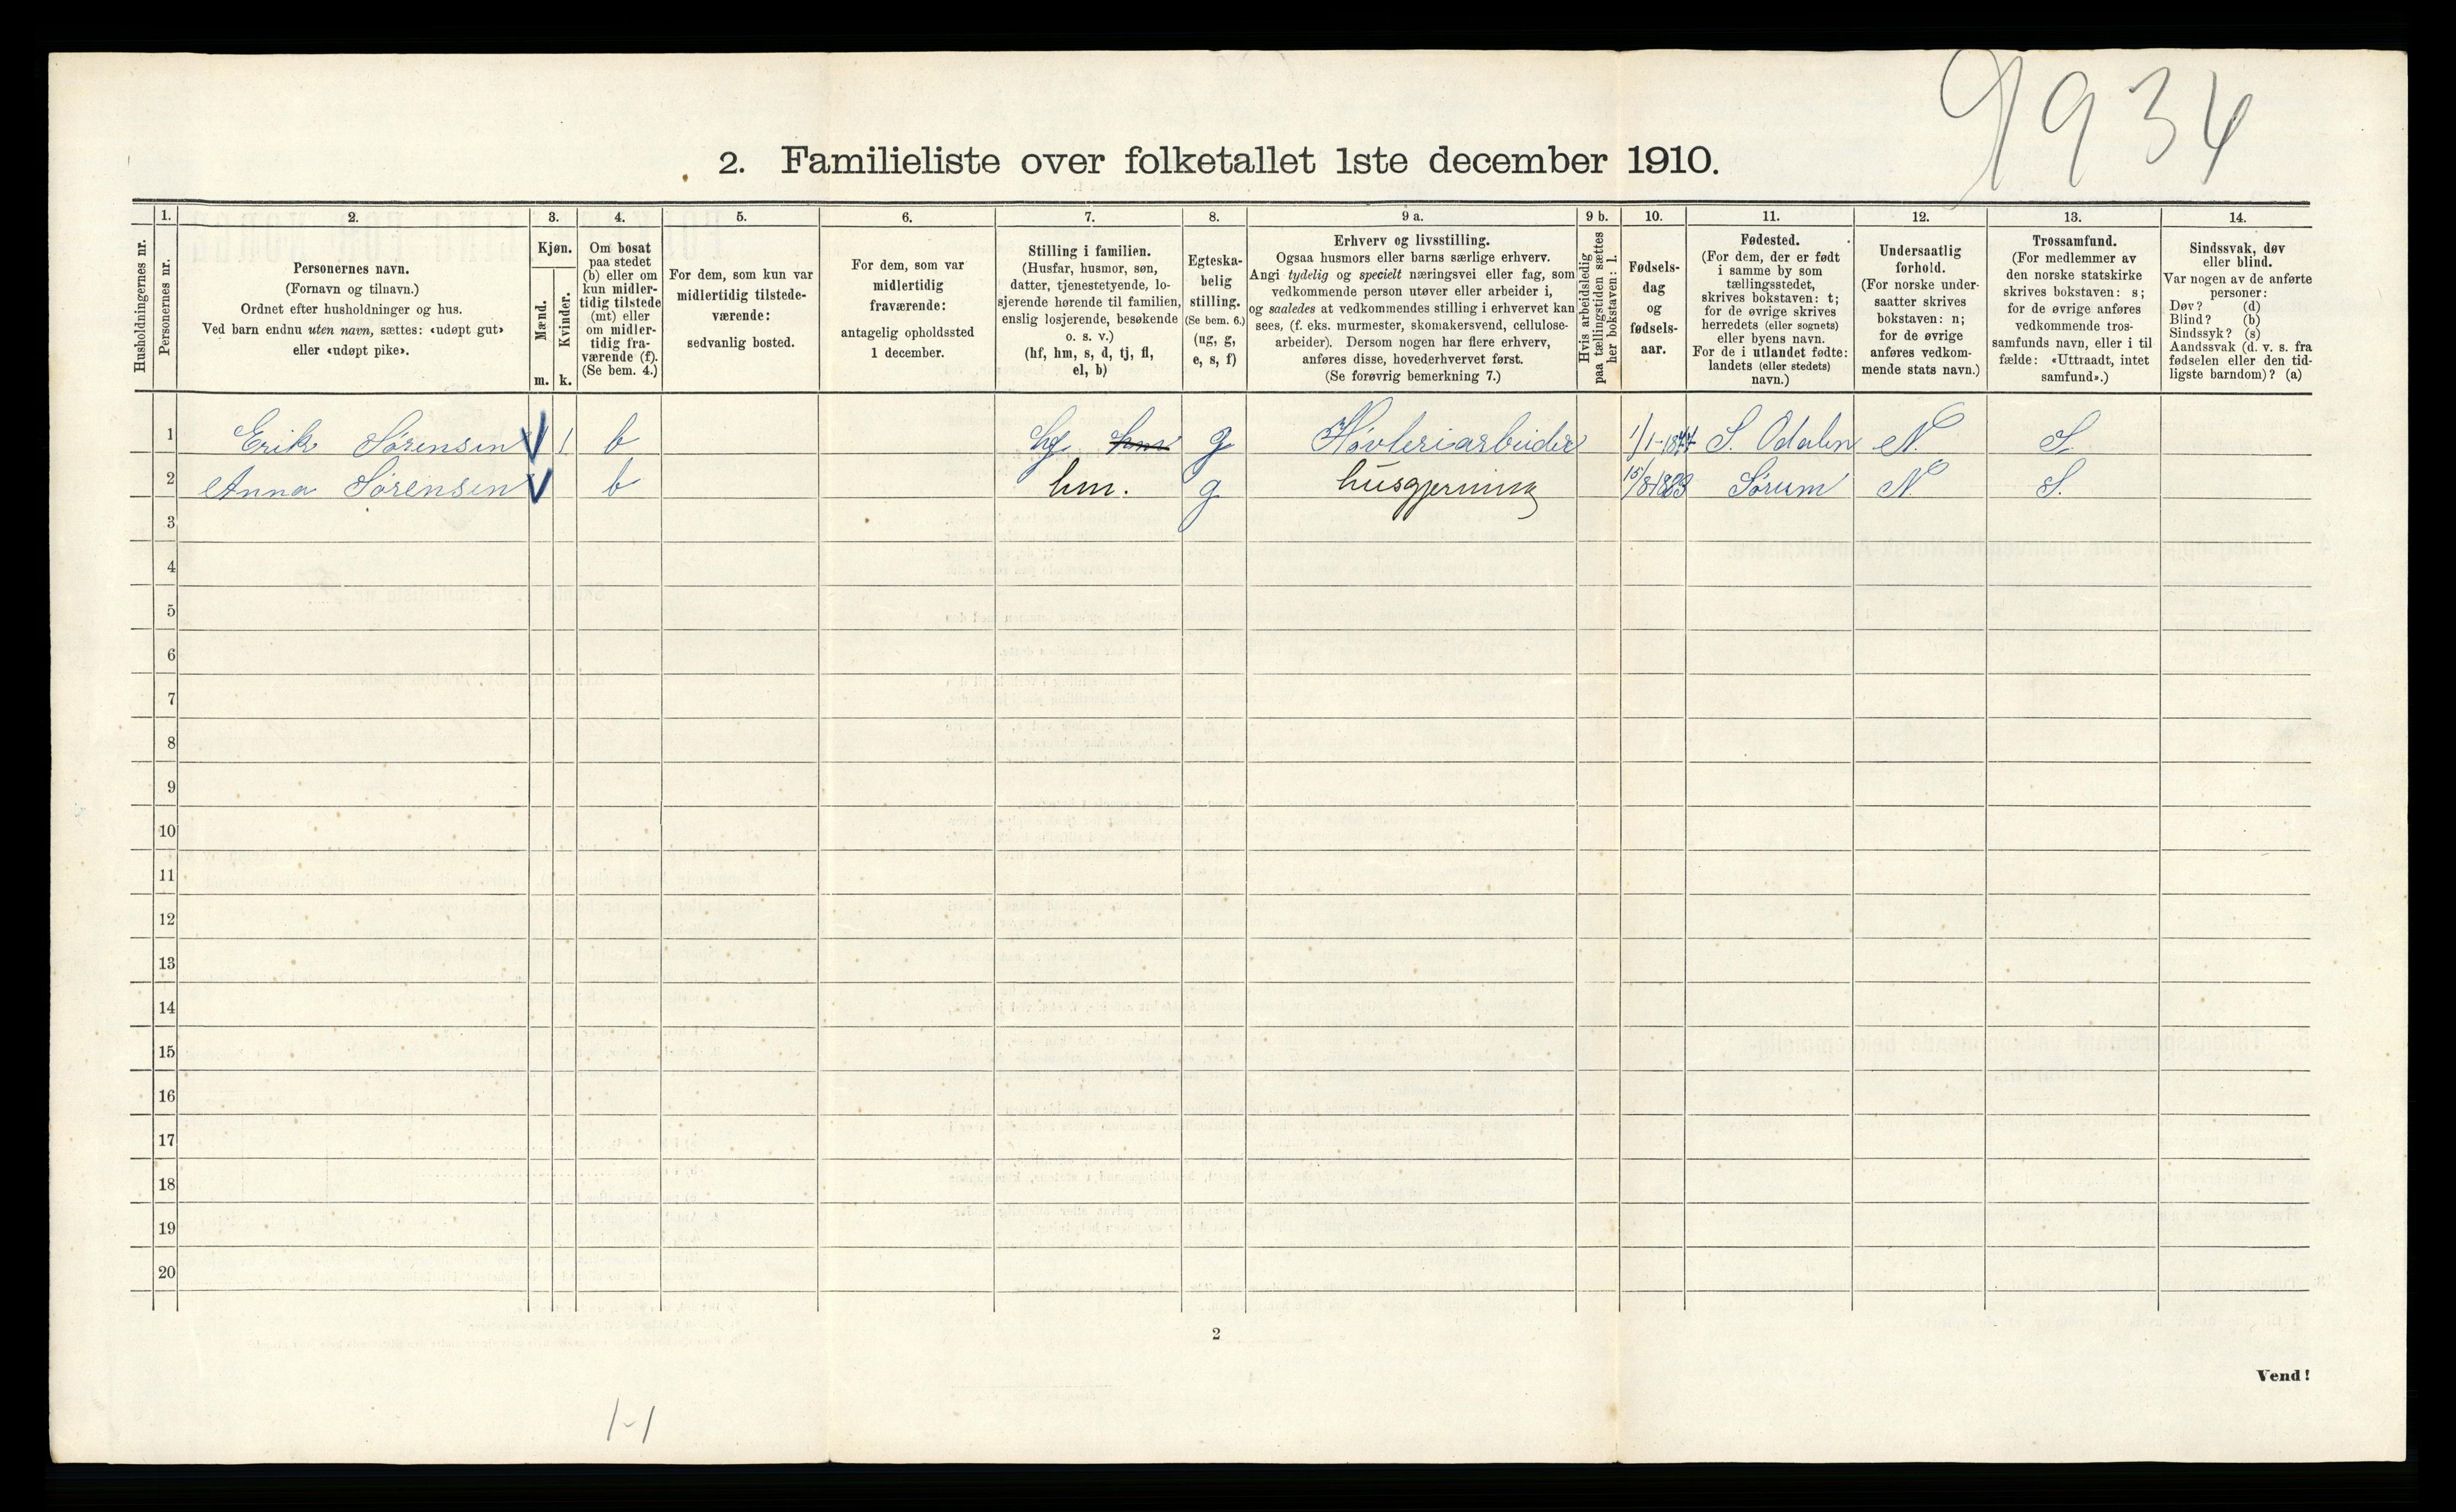 9934
2. Familieliste over folketallet 1ste december 1910.
Husholdningernes nr.
1.
Personernes nr.
2.
Personernes navn.
(Fornavn og tilnavn.)
Ordnet efter husholdninger og hus.
Ved barn endnu uten navn, sættes: «udøpt gut»
eller «udøpt pike».
3.
Kjøn.
Mænd.
m.
Kvinder.
k.
4.
Om bosat
paa stedet
(b) eller om
kun midler-
tidig tilstede
(mt) eller
om midler-
tidig fra-
værende (f).
(Se bem. 4.)
5.
For dem, som kun var
midlertidig tilstede-
værende:
sedvanlig bosted.
6.
For dem, som var
midlertidig
fraværende:
antagelig opholdssted
1 december.
7.
Stilling i familien.
(Husfar, husmor, søn,
datter, tjenestetyende, lo-
sjerende hørende til familien,
enslig losjerende, besøkende
o. s. v.)
(hf, hm, s, d, tj, fl,
el, b)
8.
Egteska-
belig
stilling.
(Se bem. 6.)
(ug, g,
e, s, f)
9 a.
Erhverv og livsstilling.
Ogsaa husmors eller barns særlige erhverv.
Angi tydelig og specielt næringsvei eller fag, som
vedkommende person utøver eller arbeider i,
og saaledes at vedkommendes stilling i erhvervet kan
sees, (f. eks. murmester, skomakersvend, cellulose-
arbeider). Dersom nogen har flere erhverv,
anføres disse, hovederhvervet først.
(Se forøvrig bemerkning 7.)
9 b.
Hvis arbeidsledig
paa tællingstiden sættes
her bokstaven: l.
10.
Fødsels-
dag
og
fødsels-
aar.
11.
Fødested.
(For dem, der er født
i samme by som
tællingsstedet,
skrives bokstaven: t;
for de øvrige skrives
herredets (eller sognets)
eller byens navn.
For de i utlandet fødte:
landets (eller stedets)
navn.)
12.
Undersaatlig
forhold.
(For norske under-
saatter skrives
bokstaven: n;
for de øvrige
anføres vedkom-
mende stats navn.)
13.
Trossamfund.
(For medlemmer av
den norske statskirke
skrives bokstaven: s;
for de øvrige anføres
vedkommende tros-
samfunds navn, eller i til
fælde: «Uttraadt, intet
samfund».)
14.
Sindssvak, døv
eller blind.
Var nogen av de anførte
personer:
Døv? (d)
Blind? (b)
Sindssyk? (s)
Aandssvak (d. v. s. fra
fødselen eller den tid-
ligste barndom)? (a)
1 Erik Sørensen 1 b hf hm g Høvleriarbeider S. Odalen N S.
2 Anna Sørensen b hm. g husgjerning 15/8 1883 Sørum N S.
3
4
5
6
7
8
9
10
11
12
13
14
15
16
17
18
19
20
2
Vend!
1-1